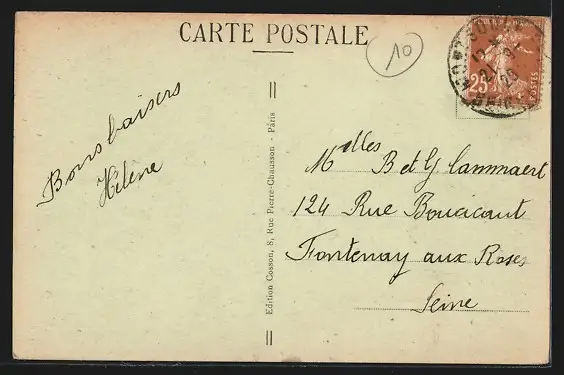 CARTE POSTALE
10
25
POSTES
Bons baisers
Hélène
Edition Cosson, 8, Rue Pierre-Chausson - Paris
Melles B et G Lammaert
124 Rue Boucicaut
Fontenay aux Roses
Seine